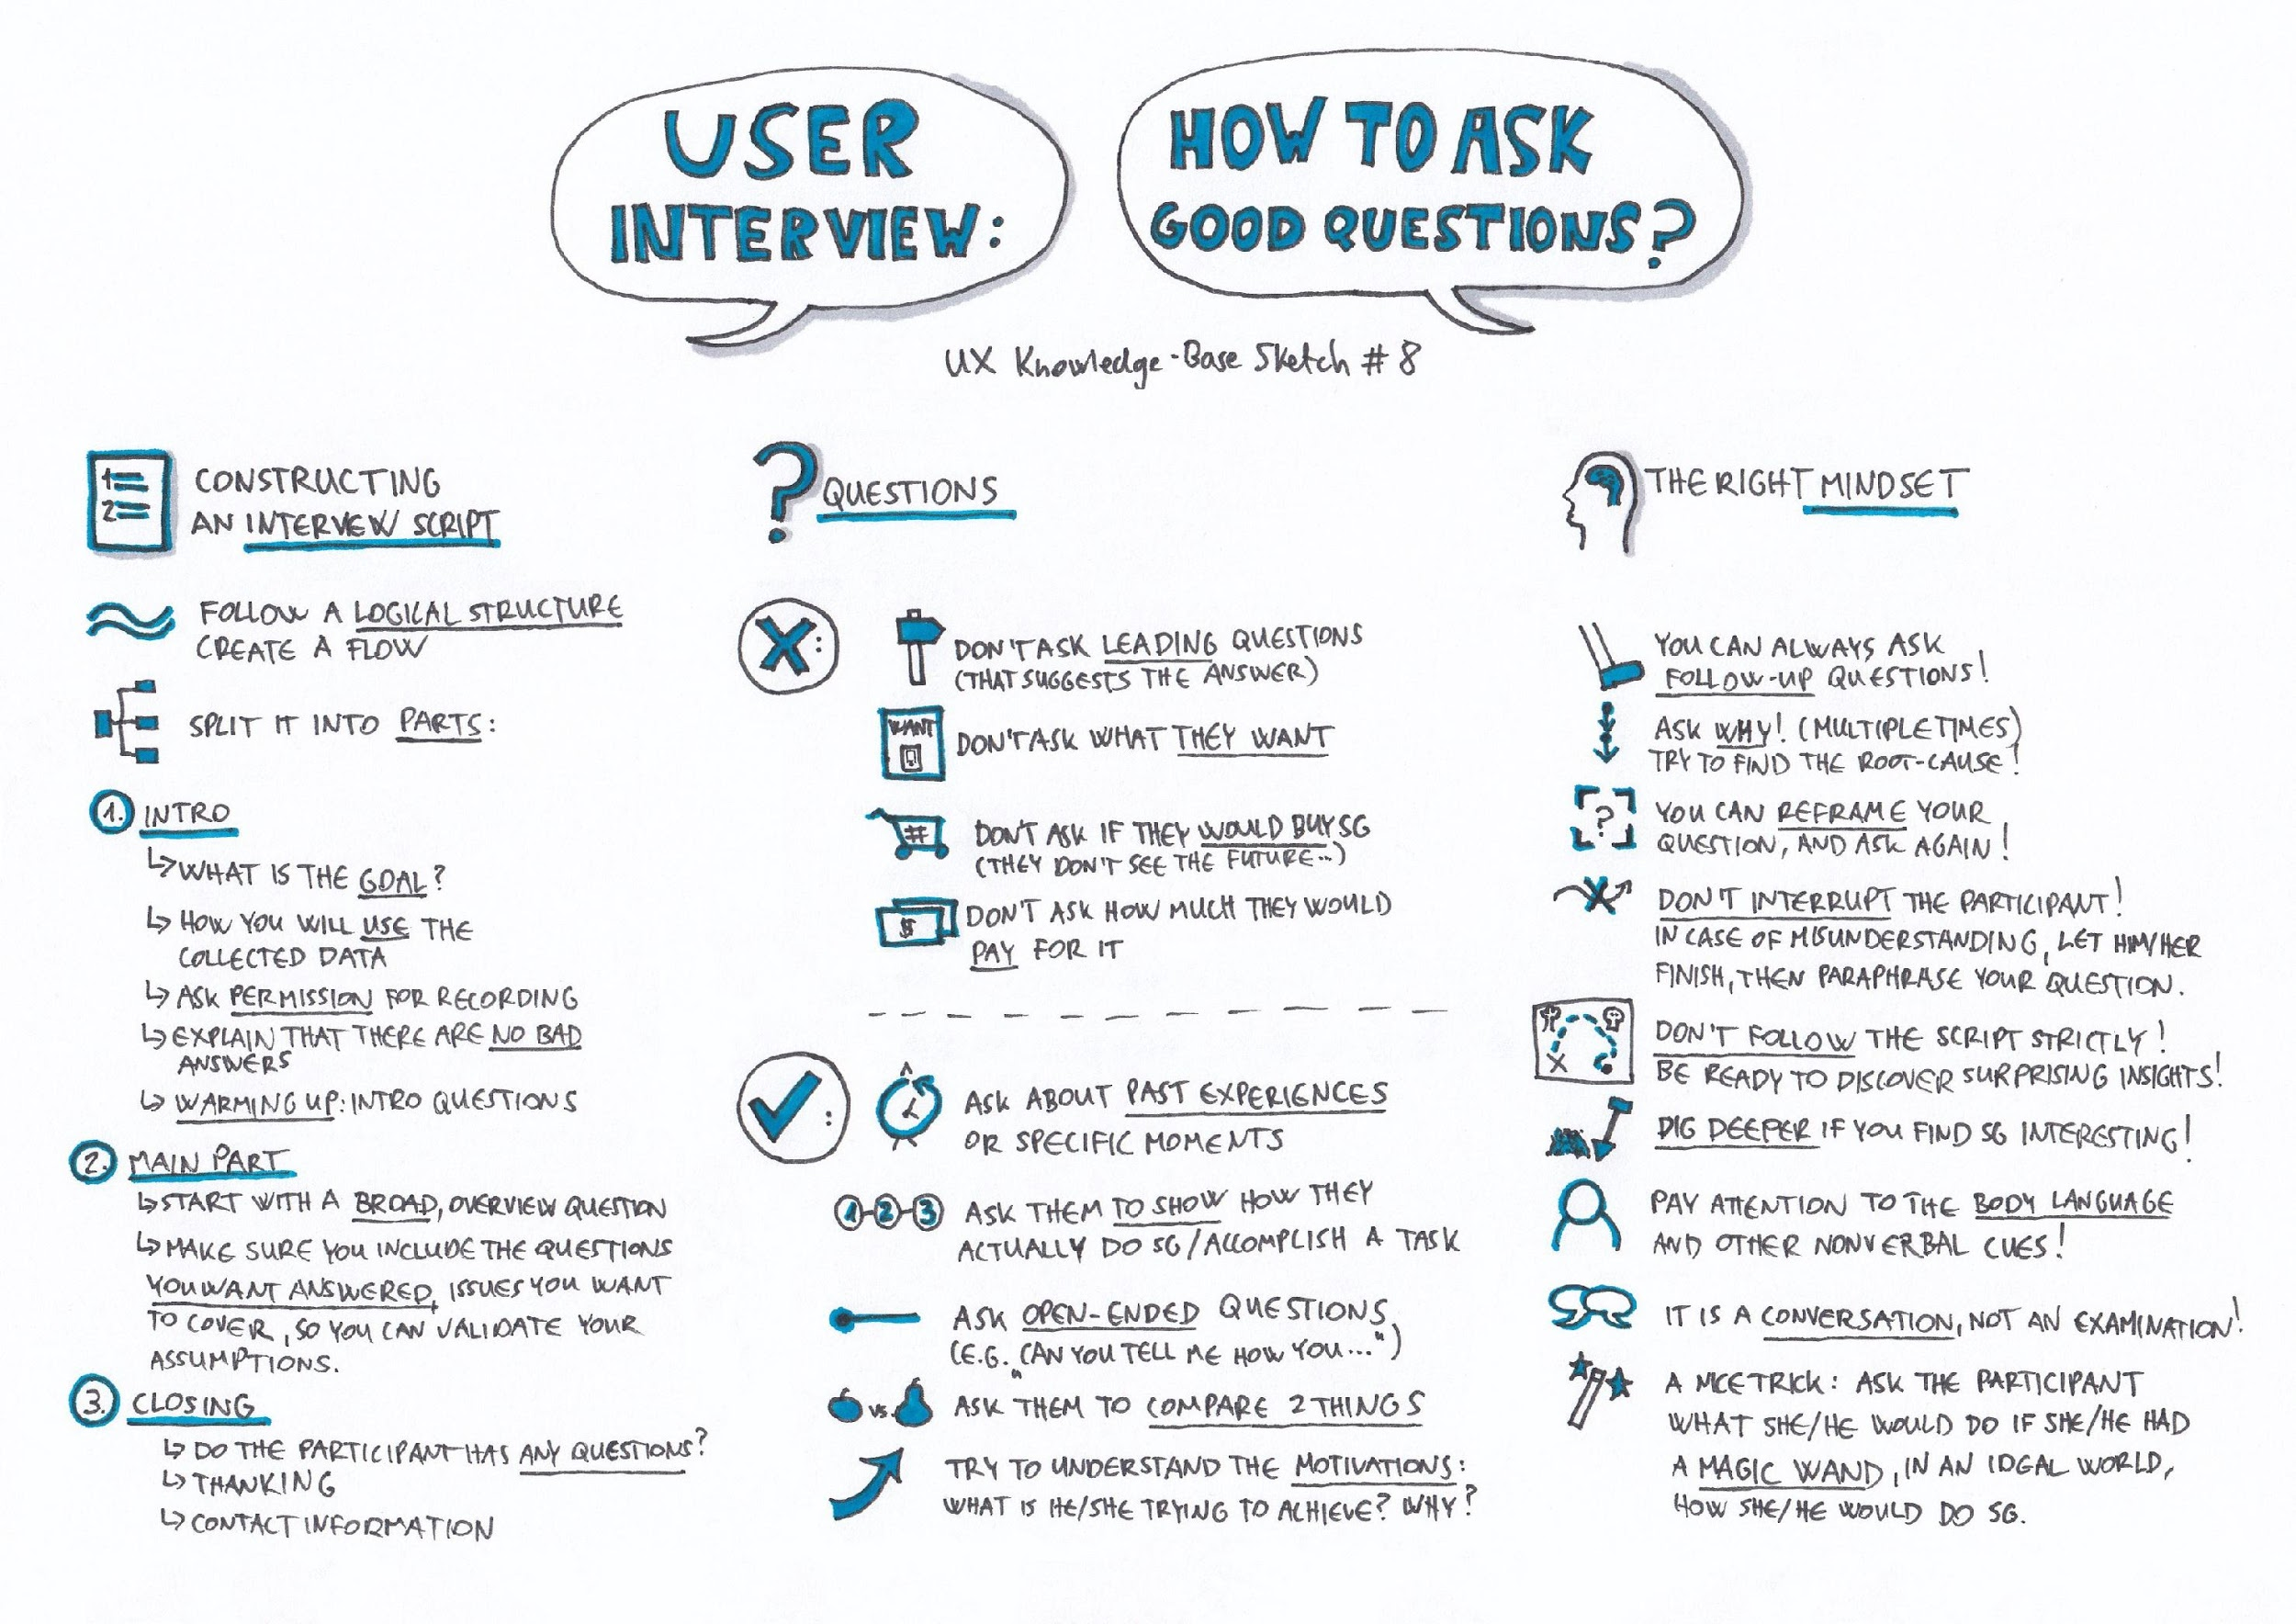 USER
INTERVIEW:
HOW TO ASK
GOOD QUESTIONS?
UX Knowledge-Base Sketch #8
1
2
CONSTRUCTING
AN INTERVIEW SCRIPT
FOLLOW A LOGICAL STRUCTURE
CREATE A FLOW
SPLIT IT INTO PARTS:
1. INTRO
↳ WHAT IS THE GOAL?
↳ HOW YOU WILL USE THE
COLLECTED DATA
↳ ASK PERMISSION FOR RECORDING
↳ EXPLAIN THAT THERE ARE NO BAD
ANSWERS
↳ WARMING UP: INTRO QUESTIONS
2. MAIN PART
↳ START WITH A BROAD, OVERVIEW QUESTION
↳ MAKE SURE YOU INCLUDE THE QUESTIONS
YOU WANT ANSWERED, ISSUES YOU WANT
TO COVER, SO YOU CAN VALIDATE YOUR
ASSUMPTIONS.
3. CLOSING
↳ DO THE PARTICIPANT HAS ANY QUESTIONS?
↳ THANKING
↳ CONTACT INFORMATION
? QUESTIONS
X:
DON'T ASK LEADING QUESTIONS
(THAT SUGGESTS THE ANSWER)
WANT
DON'T ASK WHAT THEY WANT
#
DON'T ASK IF THEY WOULD BUY SG
(THEY DON'T SEE THE FUTURE...)
$
DON'T ASK HOW MUCH THEY WOULD
PAY FOR IT
✓:
ASK ABOUT PAST EXPERIENCES
OR SPECIFIC MOMENTS
1-2-3
ASK THEM TO SHOW HOW THEY
ACTUALLY DO SG/ACCOMPLISH A TASK
ASK OPEN-ENDED QUESTIONS
(E.G. "CAN YOU TELL ME HOW YOU...")
vs.
ASK THEM TO COMPARE 2 THINGS
TRY TO UNDERSTAND THE MOTIVATIONS:
WHAT IS HE/SHE TRYING TO ACHIEVE? WHY?
THE RIGHT MINDSET
YOU CAN ALWAYS ASK
FOLLOW-UP QUESTIONS!
ASK WHY! (MULTIPLE TIMES)
TRY TO FIND THE ROOT-CAUSE!
?
YOU CAN REFRAME YOUR
QUESTION, AND ASK AGAIN!
DON'T INTERRUPT THE PARTICIPANT!
IN CASE OF MISUNDERSTANDING, LET HIM/HER
FINISH, THEN PARAPHRASE YOUR QUESTION.
DON'T FOLLOW THE SCRIPT STRICTLY!
BE READY TO DISCOVER SURPRISING INSIGHTS!
DIG DEEPER IF YOU FIND SG INTERESTING!
PAY ATTENTION TO THE BODY LANGUAGE
AND OTHER NONVERBAL CUES!
IT IS A CONVERSATION, NOT AN EXAMINATION!
A NICE TRICK: ASK THE PARTICIPANT
WHAT SHE/HE WOULD DO IF SHE/HE HAD
A MAGIC WAND, IN AN IDEAL WORLD,
HOW SHE/HE WOULD DO SG.